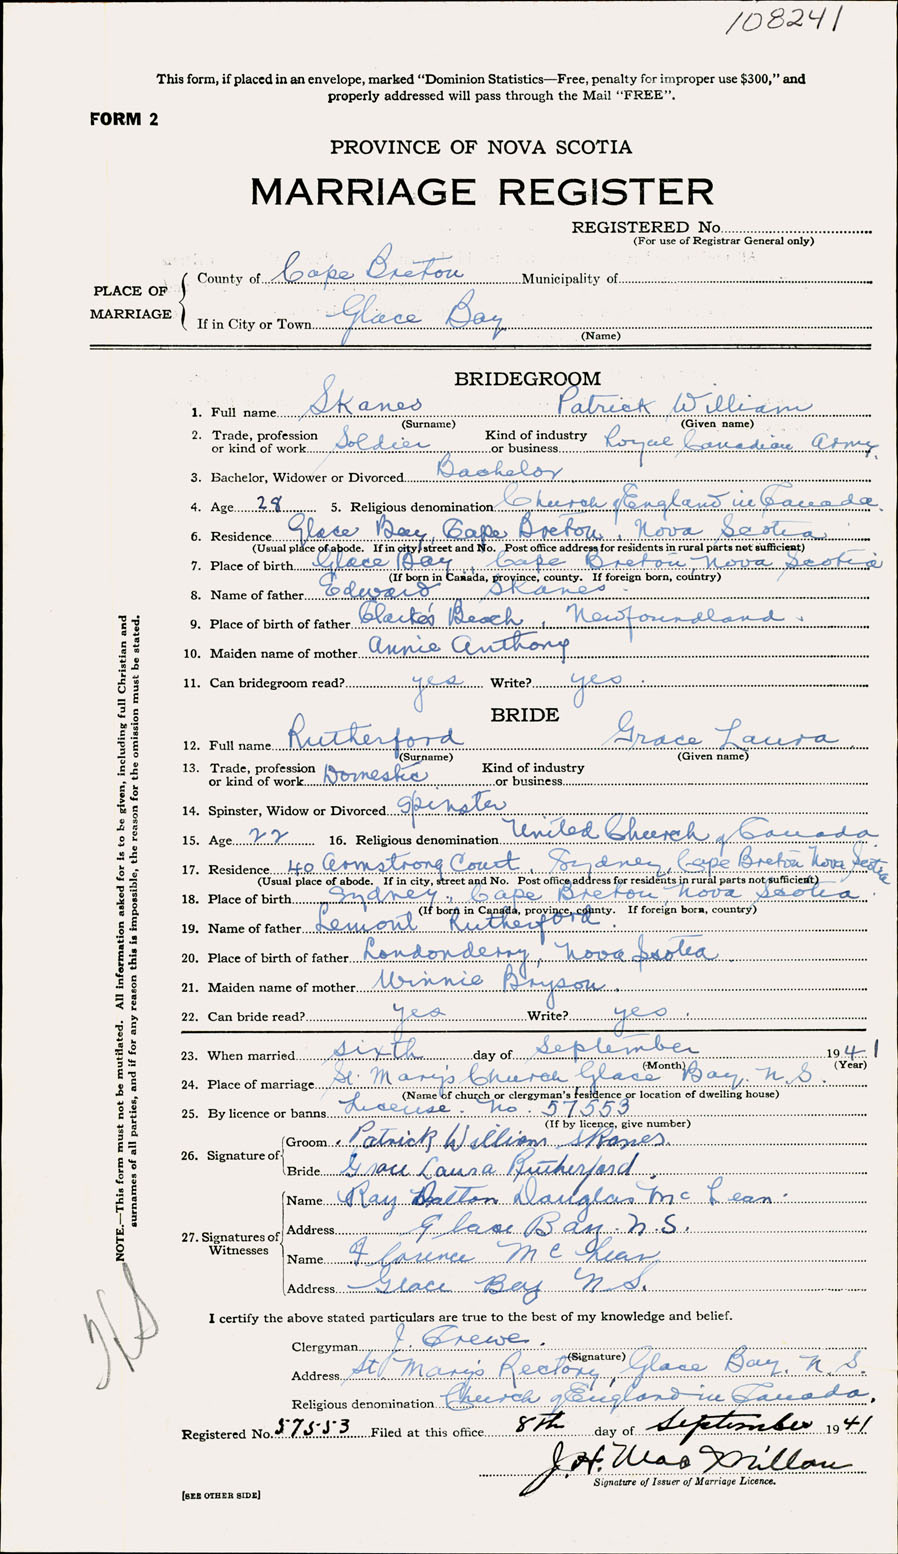 108241
This form, if placed in an envelope, marked "Dominion Statistics—Free, penalty for improper use $300," and
properly addressed will pass through the Mail "FREE".
FORM 2
PROVINCE OF NOVA SCOTIA
MARRIAGE REGISTER
REGISTERED No.
(For use of Registrar General only)
PLACE OF MARRIAGE
County of Cape Breton Municipality of
If in City or Town Glace Bay
(Name)
BRIDEGROOM
1. Full name Skanes Patrick William
(Surname) (Given name)
2. Trade, profession or kind of work Soldier Kind of industry or business Royal Canadian Army.
3. Bachelor, Widower or Divorced Bachelor
4. Age 28 5. Religious denomination Church of England in Canada.
6. Residence Glace Bay, Cape Breton, Nova Scotia
(Usual place of abode. If in city, street and No. Post office address for residents in rural parts not sufficient)
7. Place of birth Glace Bay, Cape Breton Nova Scotia
(If born in Canada, province, county. If foreign born, country)
8. Name of father Edward Skanes.
9. Place of birth of father Clarke's Beach, Newfoundland.
10. Maiden name of mother Annie Anthony
11. Can bridegroom read? yes Write? yes.
BRIDE
12. Full name Rutherford Grace Laura.
(Surname) (Given name)
13. Trade, profession or kind of work Domestic Kind of industry or business
14. Spinster, Widow or Divorced Spinster
15. Age 22 16. Religious denomination United Church of Canada.
17. Residence 40 Armstrong Court, Sydney, Cape Breton Nova Scotia.
(Usual place of abode. If in city, street and No. Post office address for residents in rural parts not sufficient)
18. Place of birth Sydney, Cape Breton, Nova Scotia
(If born in Canada, province, county. If foreign born, country)
19. Name of father Lemont Rutherford.
20. Place of birth of father Londonderry, Nova Scotia.
21. Maiden name of mother Winnie Bryson.
22. Can bride read? yes Write? yes.
23. When married sixth day of September 1941
(Month) (Year)
24. Place of marriage St. Mary's Church Glace Bay. N.S.
(Name of church or clergyman's residence or location of dwelling house)
25. By licence or banns License. No. 57553
(If by licence, give number)
26. Signature of
Groom. Patrick William Skanes
Bride Grace Laura Rutherford
27. Signatures of Witnesses
Name Ray Dalton Douglas McLean.
Address Glace Bay. N.S.
Name Florence McLean
Address Glace Bay N.S.
I certify the above stated particulars are true to the best of my knowledge and belief.
Clergyman J. Crewe.
(Signature)
Address St Mary's Rectory, Glace Bay. N.S.
Religious denomination Church of England in Canada.
Registered No. 57553 Filed at this office 8th day of September 1941
J. H. MacMillan
Signature of Issuer of Marriage Licence.
[SEE OTHER SIDE]
NOTE.—This form must not be mutilated. All information asked for is to be given, including full Christian and
surnames of all parties, and if for any reason this is impossible, the reason for the omission must be stated.